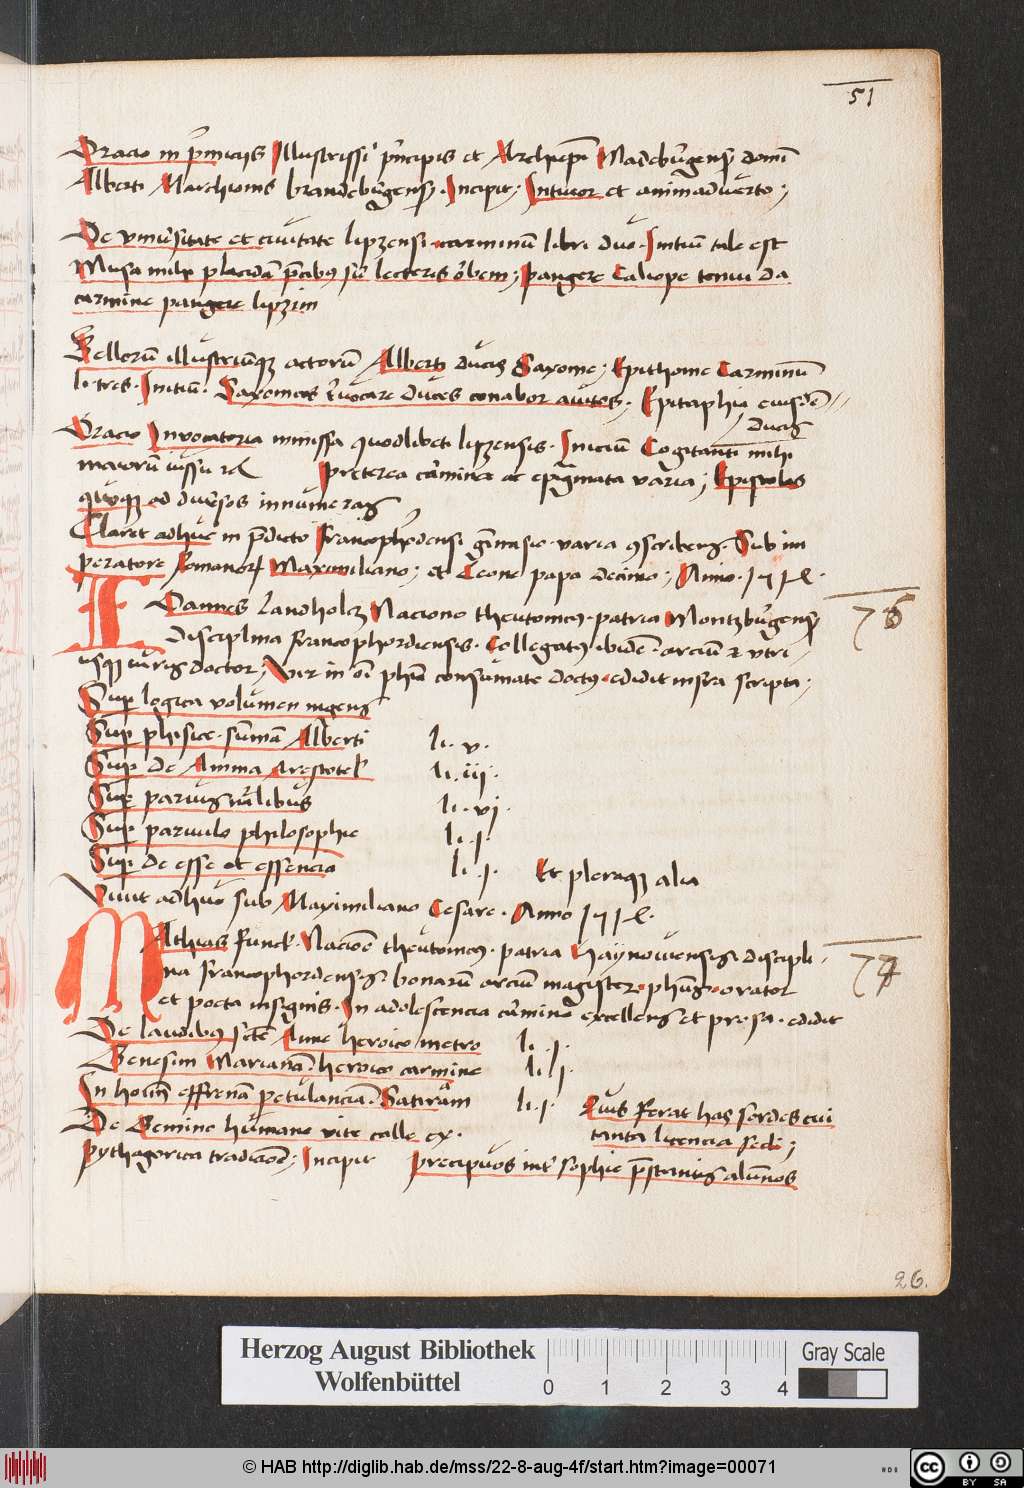 51
Oracio in p̄miciis Illustrissi' p̄ncipis et Archiep̄i Madeb'gens' domī
Alberti Marchionis brandeb'gens'. Incipit; Intuor et animaduerto;
De vniu'sitate et ciuitate lipzensi carminū libri duo. Initiū tale est
Musa mihi placidā p̄cibus lecteris orbem; pangere Caliope tenui da
carmine pangere lipzim
Bellorū illustriūqz actorū Alberti ducis Saxonie; Epithome Carminū
li. tres. Initiū. Saxonicos r'uocare duces conabor auitos. Epitaphia eiusdē
ducis
Oracio Inuocatoria in missa quodlibeti lipzensis. Iniciū Cogitanti mihi
maiorū iussu rc̄ Preterea c'mina ac ep̄gmata varia; Epistolas
quoqz ad diu'sos innumeras
Claret adhuc in p̄dicto francophordensi gimnasio varia 9scribens. Sub im
peratore Romanorū Maximiliano; et Leone papa decimo; Anno.
IOannes Landholcz Nacione theutonicus. patria Montzb'gens'
disciplina francophordiensis. Collegatus ibidē. arciū et vtri
usqz iuris doctor; Vir in oī ph̄ia consūmate doctus edidit infra scripta;
76
Sup logica volumen ingens
Sup phisice. sūmā Alberti li. v.
Sup de Anima Arestotel' li. iij.
Sup paruis nālibus li. vj.
Sup paruulo philosophie li. j.
Sup de esse et essencia li. j. Et pleraqz alia
Viuit adhuc sub Maximiliano Cesare. Anno
MAthias funck. Nacione theutonicus. patria Haynowiensis. discipli
na francophordensis. bonarū arciū magister. ph̄us. orator
et poeta insignis. In adolescencia c'mine excellens et prosa. edidit
77
De laudibus sctē Anne heroico metro li. j.
Genesim Marianā. heroico carmine li. j.
In hoīm effrenā petulanciā. Satirām li. j. Quis ferat has sordes cui
tanta licencia sedi;
De Gemino humane vite calle ex
pythagorica tradicione; Incipit Precipuos int' sophie p̄stantis alūnos
26.
Herzog August Bibliothek
Wolfenbüttel
0 1 2 3 4
Gray Scale
© HAB http://diglib.hab.de/mss/22-8-aug-4f/start.htm?image=00071
cc BY SA